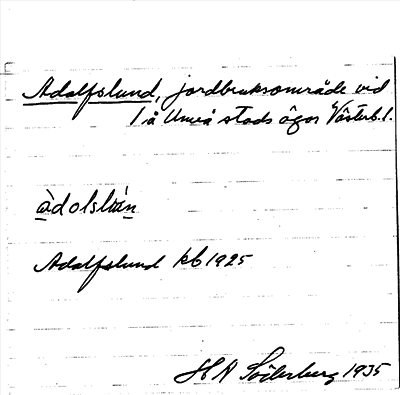 Adolfslund, jordbruksområde vid
/ å Umeå stads ägor Västerb. l.
àdolslɯn
Adolfslund kb 1925
H A Söderberg 1935